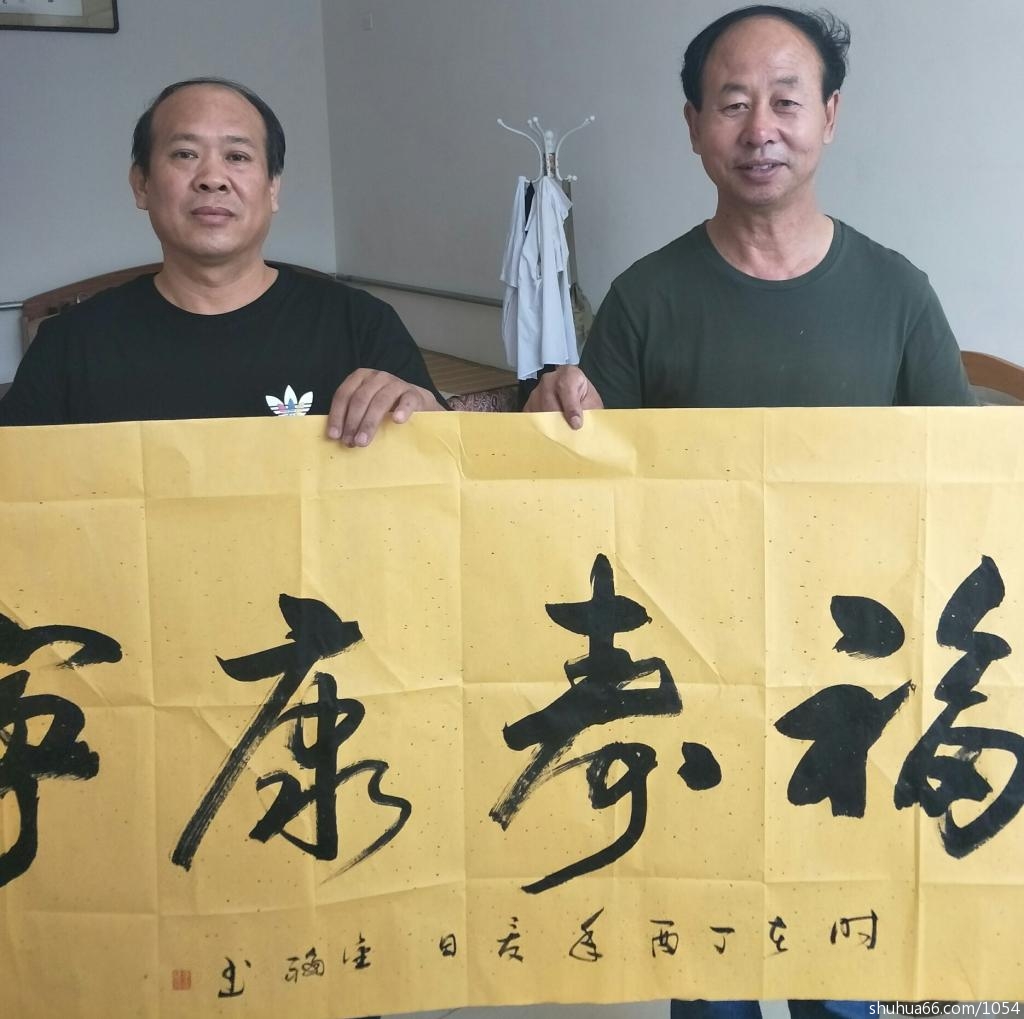 福寿康宁
时在丁酉年夏日金福书
shuhua66.com/1054